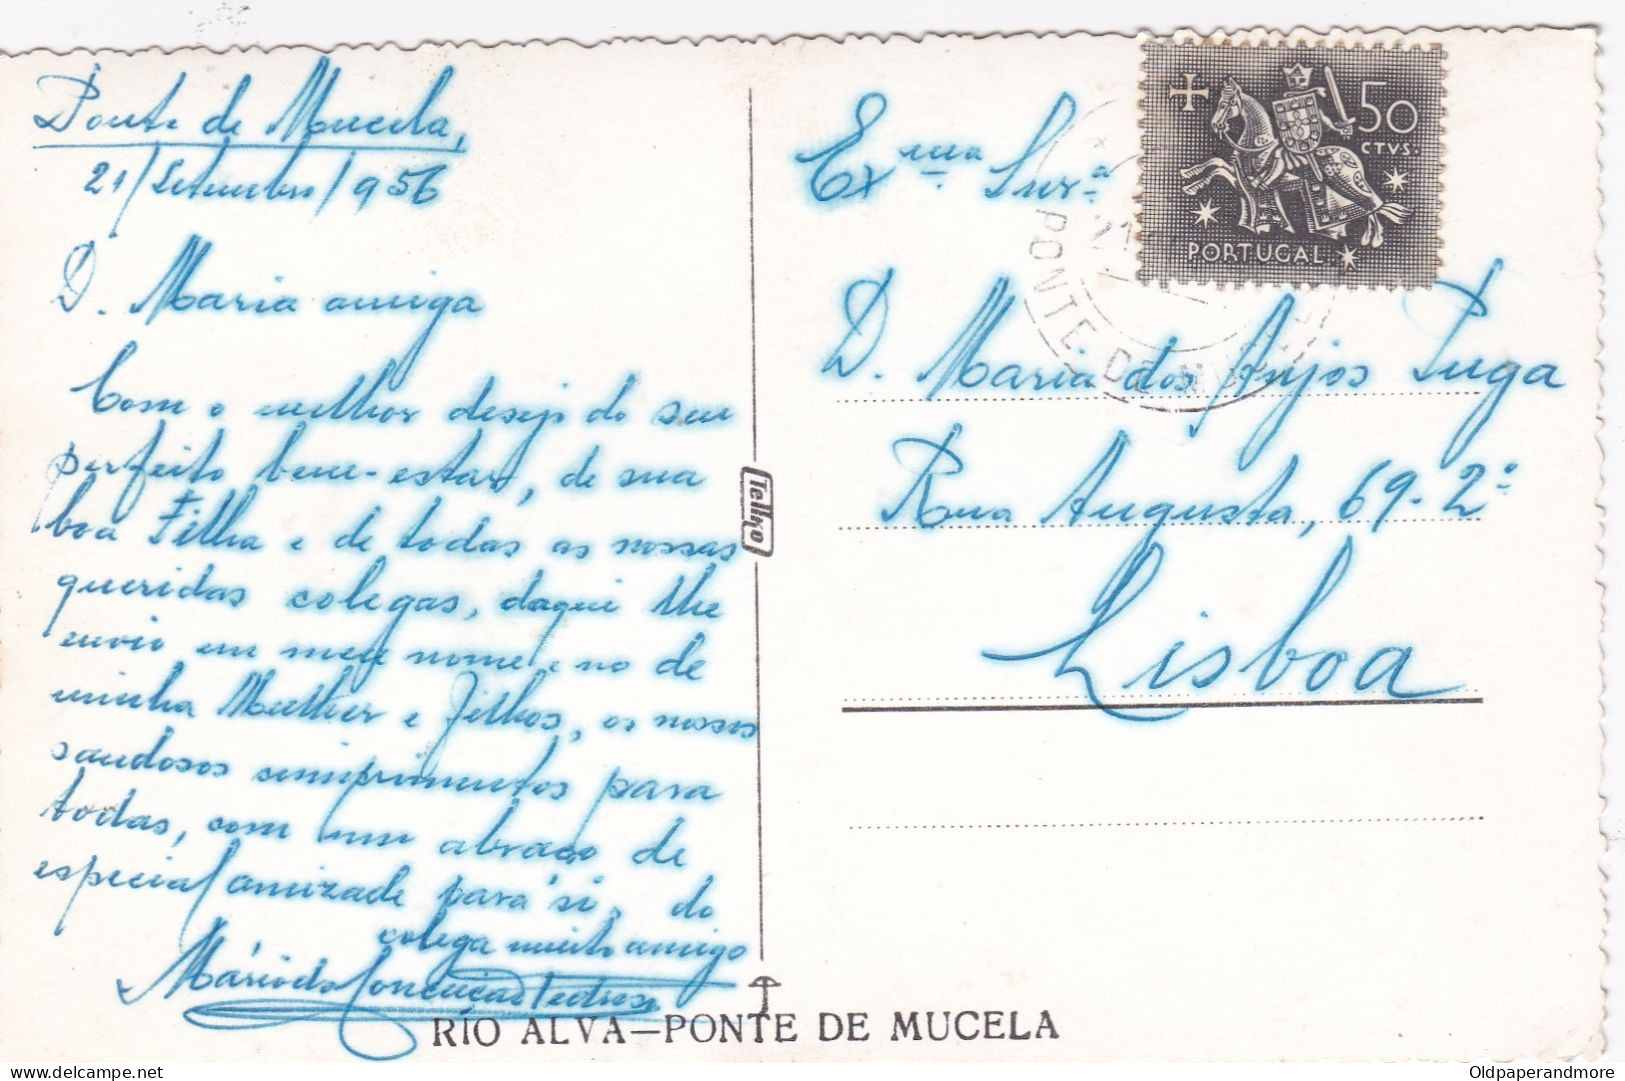 Ponte de Mucela,
21/Setembro/956
D. Maria amiga
Com o melhor desejo do seu
perfeito bem-estar, de sua
boa Filha e de todas as nossas
queridas colegas, daqui lhe
envio em meu nome e no de
minha Mulher e Filhos, os nossos
saudosos cumprimentos para
todas, com um abraço de
especial amizade para si, do
colega muito amigo
Mário da Conceição
RÍO ALVA—PONTE DE MUCELA
Telko
Exma Snra
D. Maria dos Anjos Puga
Rua Augusta, 69-2º
Lisboa
50
CTVS.
PORTUGAL
PONTE DE
21
Oldpaperandmore
www.delcampe.net